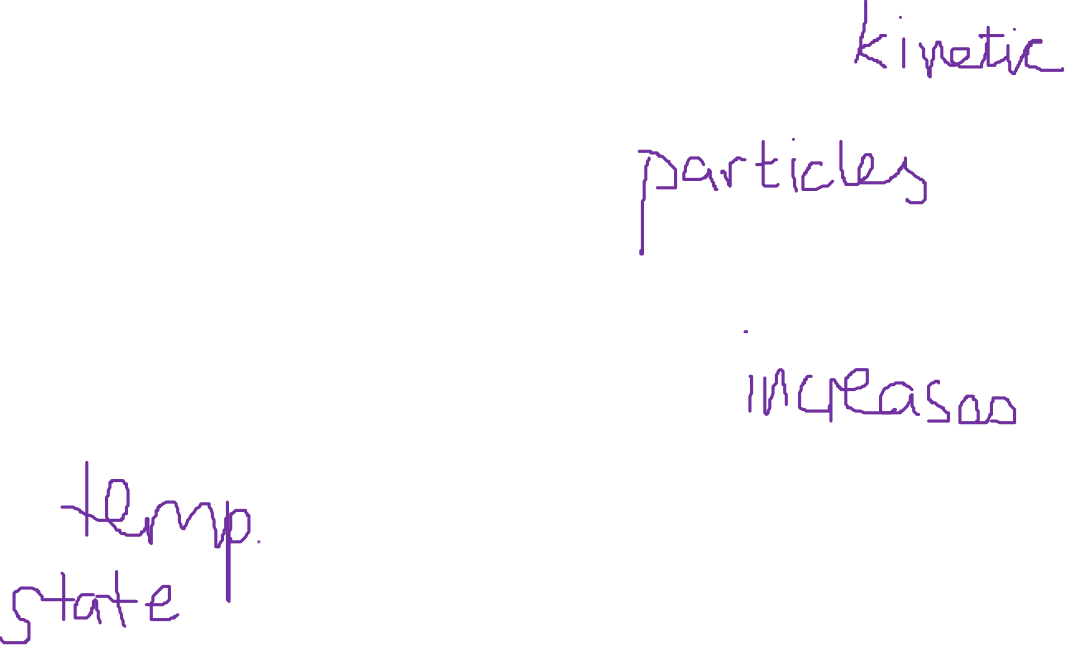 kinetic
particles
increases
temp.
state